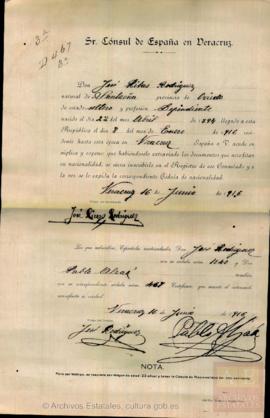 3ª
D 467
8º
Sr. Cónsul de España en Veracruz.
Don José Ribas Rodríguez
natural de provincia de Oviedo
de estado soltero y profesión Dependiente
nacido el día 22 del mes Abril de 1894 llegado a esta
República el día 8 del mes de Enero de 1910
residente hasta esta época en Veracruz España a V. acude en
súplica y expone: que habiéndosele extraviado los documentos que acreditan
su nacionalidad, se sirva inscribirle en el Registro de ese Consulado y a
la vez se le expida la correspondiente Cédula de nacionalidad.
Veracruz 16 de Junio de 1915
José Ribas Rodríguez
Los que suscriben, Españoles matriculados, Don José Rodríguez
con su cédula núm. 1120 y Don
Pablo también
con su correspondiente cédula núm. 467 Certifican: que cuanto el interesado
manifiesta es verdad.
Veracruz 16 de Junio de 1915
José Rodríguez
NOTA.
© Archivos Estatales, cultura.gob.es